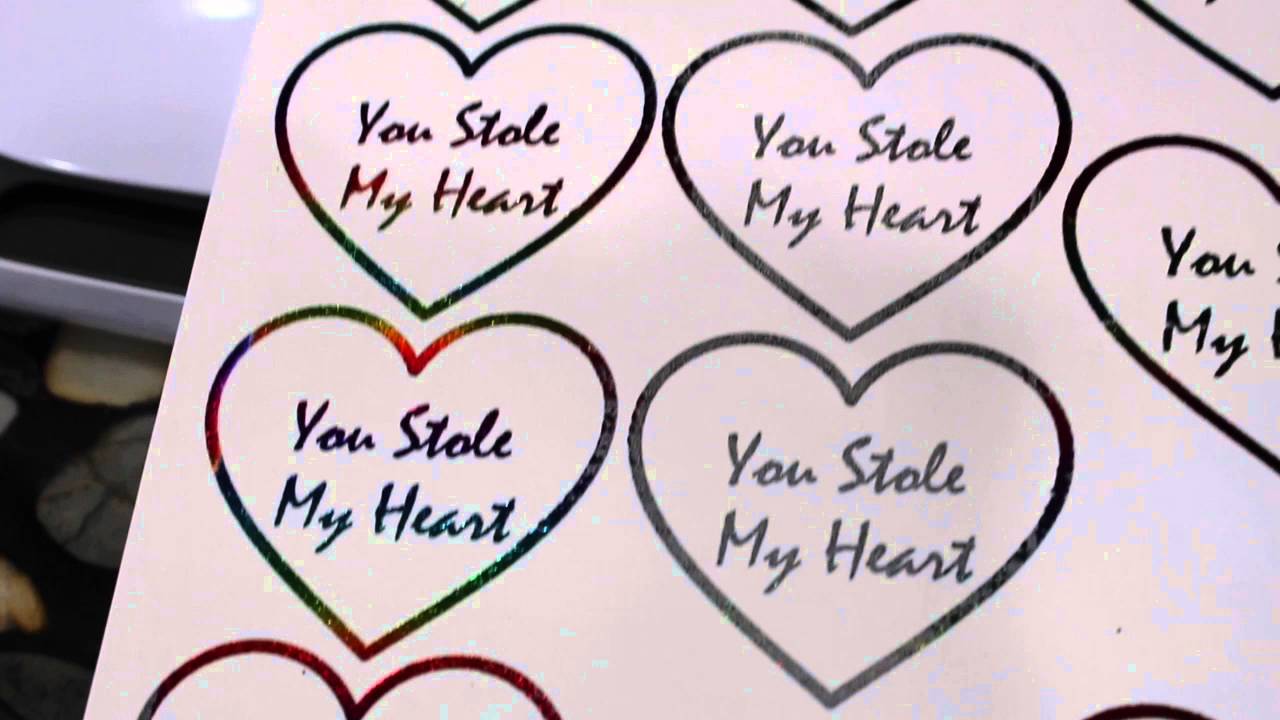 You Stole
My Heart
You Stole
My Heart
You
My
You Stole
My Heart
You Stole
My Heart